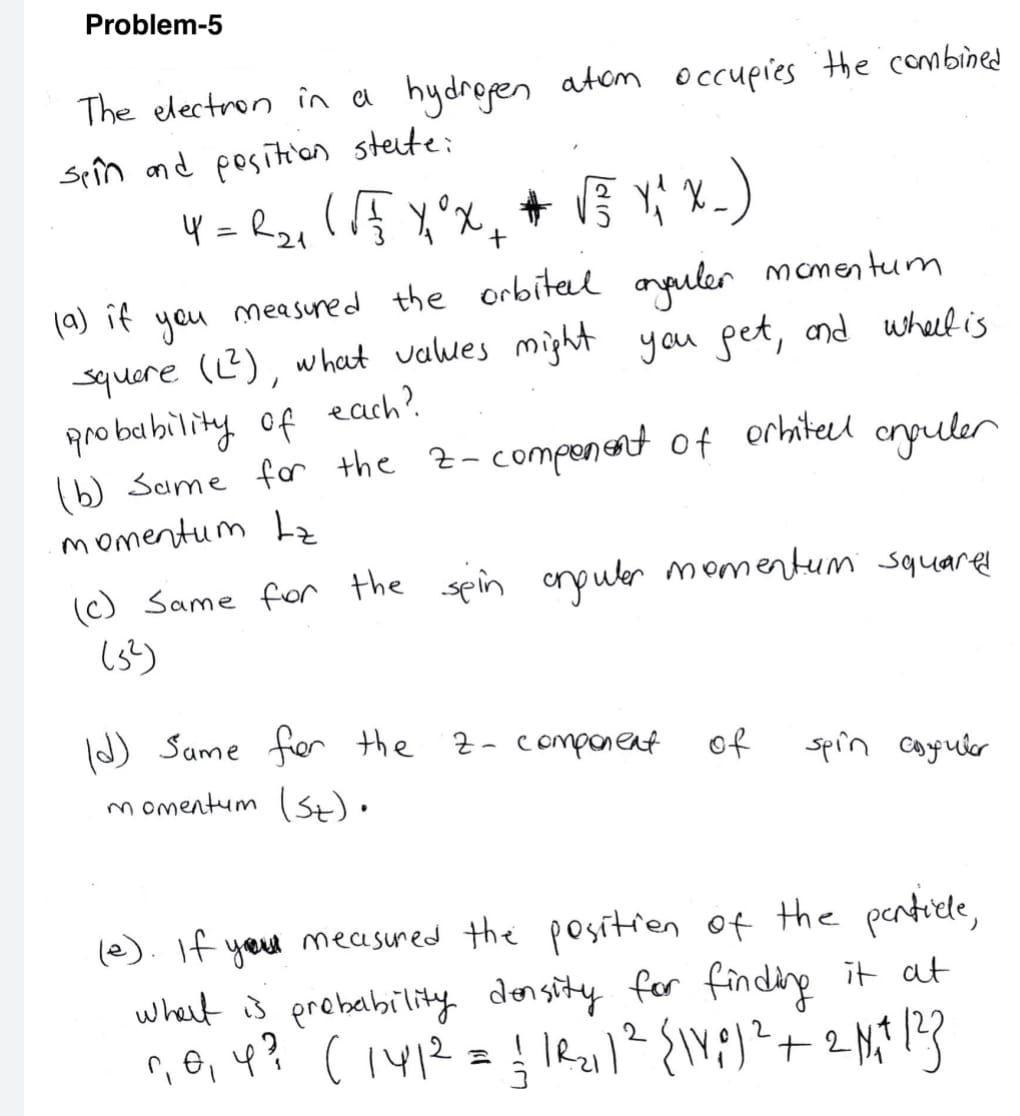 Problem-5
The electron in a hydrogen atom occupies the combined
spin and position state:
Ψ = R₂₁ (√(1/3) Y₁⁰ χ₊ + √(2/3) Y₁¹ χ₋)
(a) if you measured the orbital anguler momentum
squere (L²), what values might you get, and what is
probability of each?
(b) Same for the z-component of orbital anguler
momentum Lz
(c) Same for the spin anguler momentum squared
(s²)
(d) Same for the z-component of spin angular
momentum (Sz).
(e). If you measured the position of the particle,
what is probability density for finding it at
r, θ, φ? (|Ψ|² = 1/3 |R₂₁|² {|Y₁⁰|² + 2|Y₁¹|²}